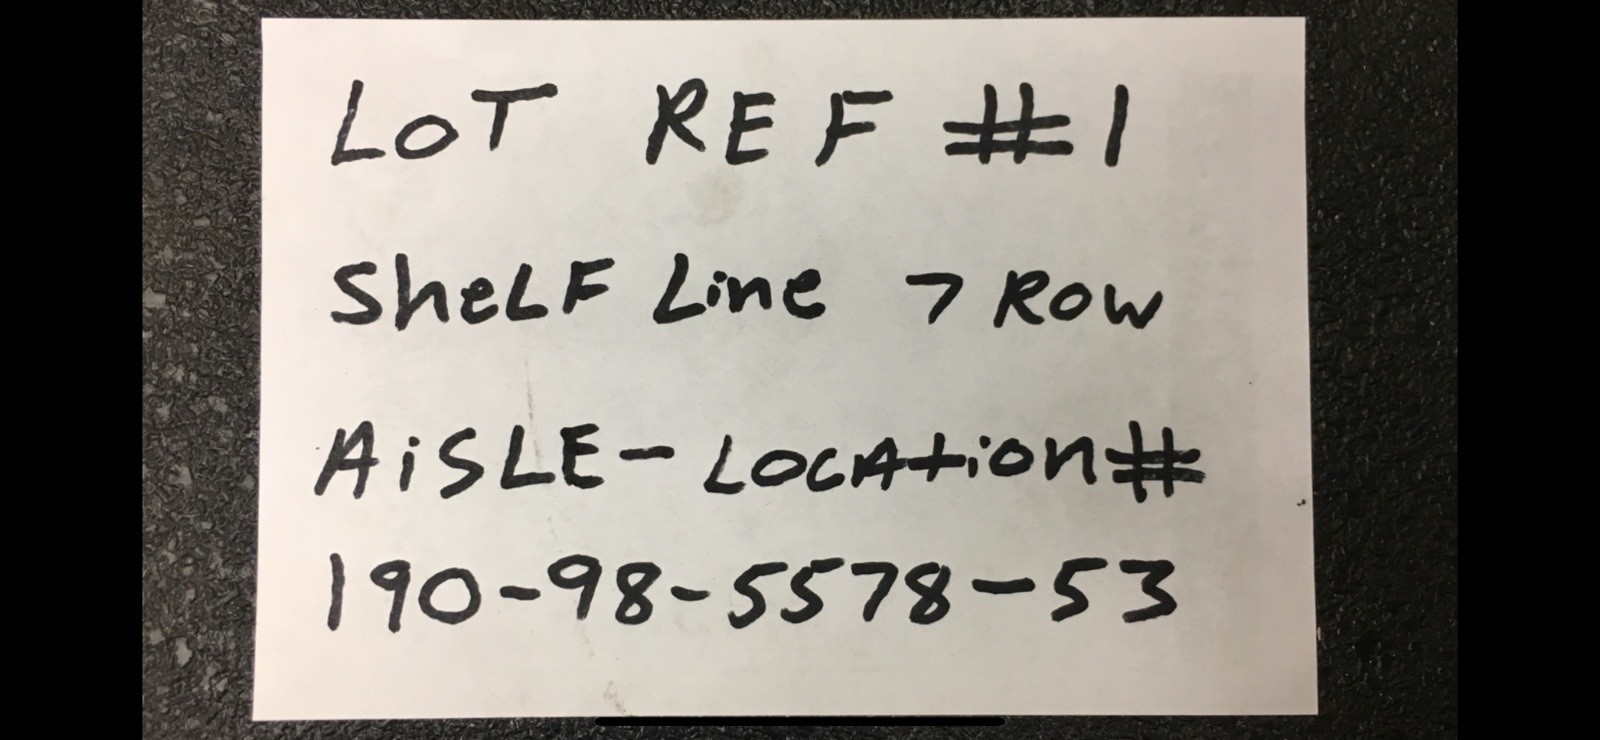 LOT REF #1
SheLF Line 7 Row
AiSLE - LOCAtion#
190-98-5578-53